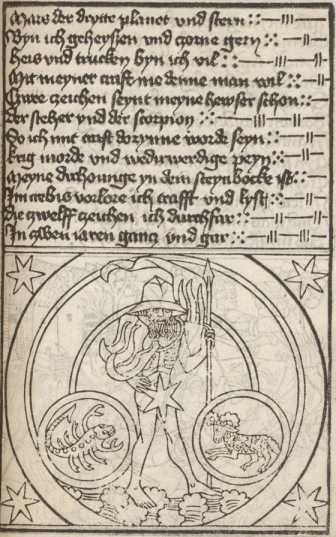 Mars der dritte planet vnd stern
Byn ich geheyssen vnd czorne gern
Heis vnd trucken byn ich vil
Mit meyner craft me denne man wil
Czwe czeichen seynt meyne hewser schon
der steher vnd der scorpion
So ich mit craft dorynne worde seyn
krig morde vnd wedirwerdige peyn
Meyne dirhounge yn dem steynbocke ist
Im crebis vorlore ich crafft vnd lyst
die czwelff czeichen ich durchfar
In czwen iaren gancz vnd gar